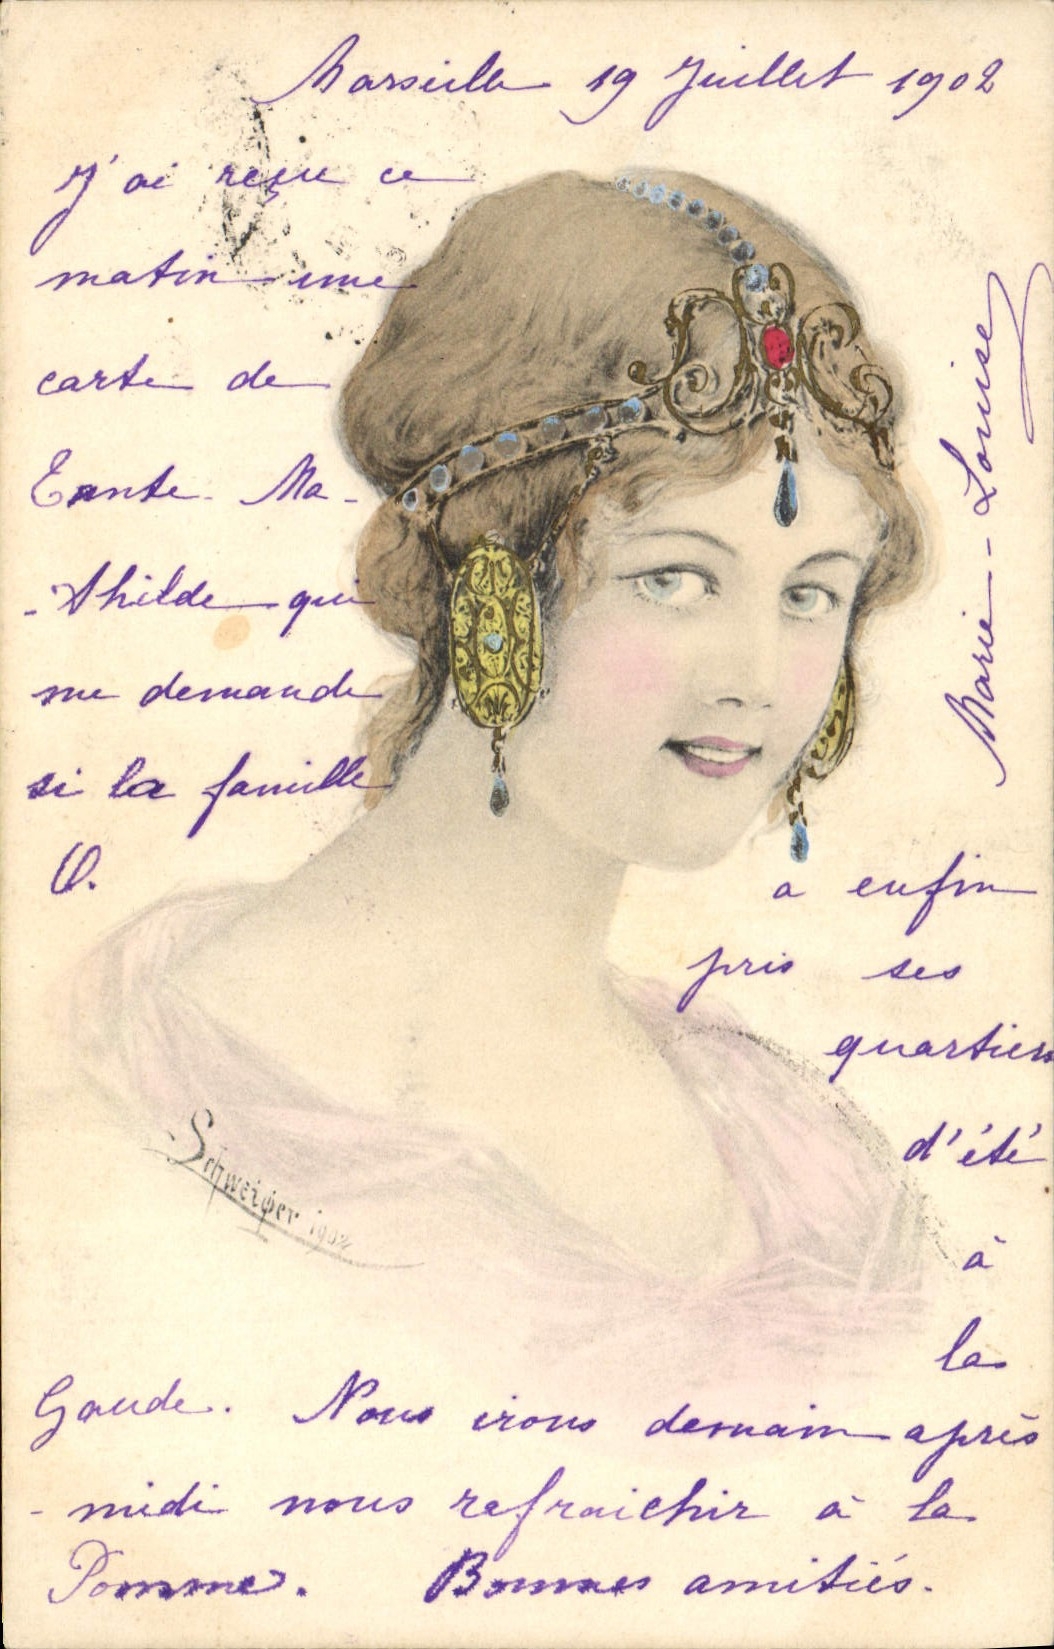 Marseille 19 Juillet 1902
J'ai reçu ce
matin une
carte de
Tante Ma-
-thilde qui
me demande
si la famille
O.
a enfin
pris ses
quartiers
d'été
à
la
Gaude. Nous irons demain après
-midi nous refraichir à la
Pomme. Bonnes amitiés.
Marie-Louise
Schweiger 1902